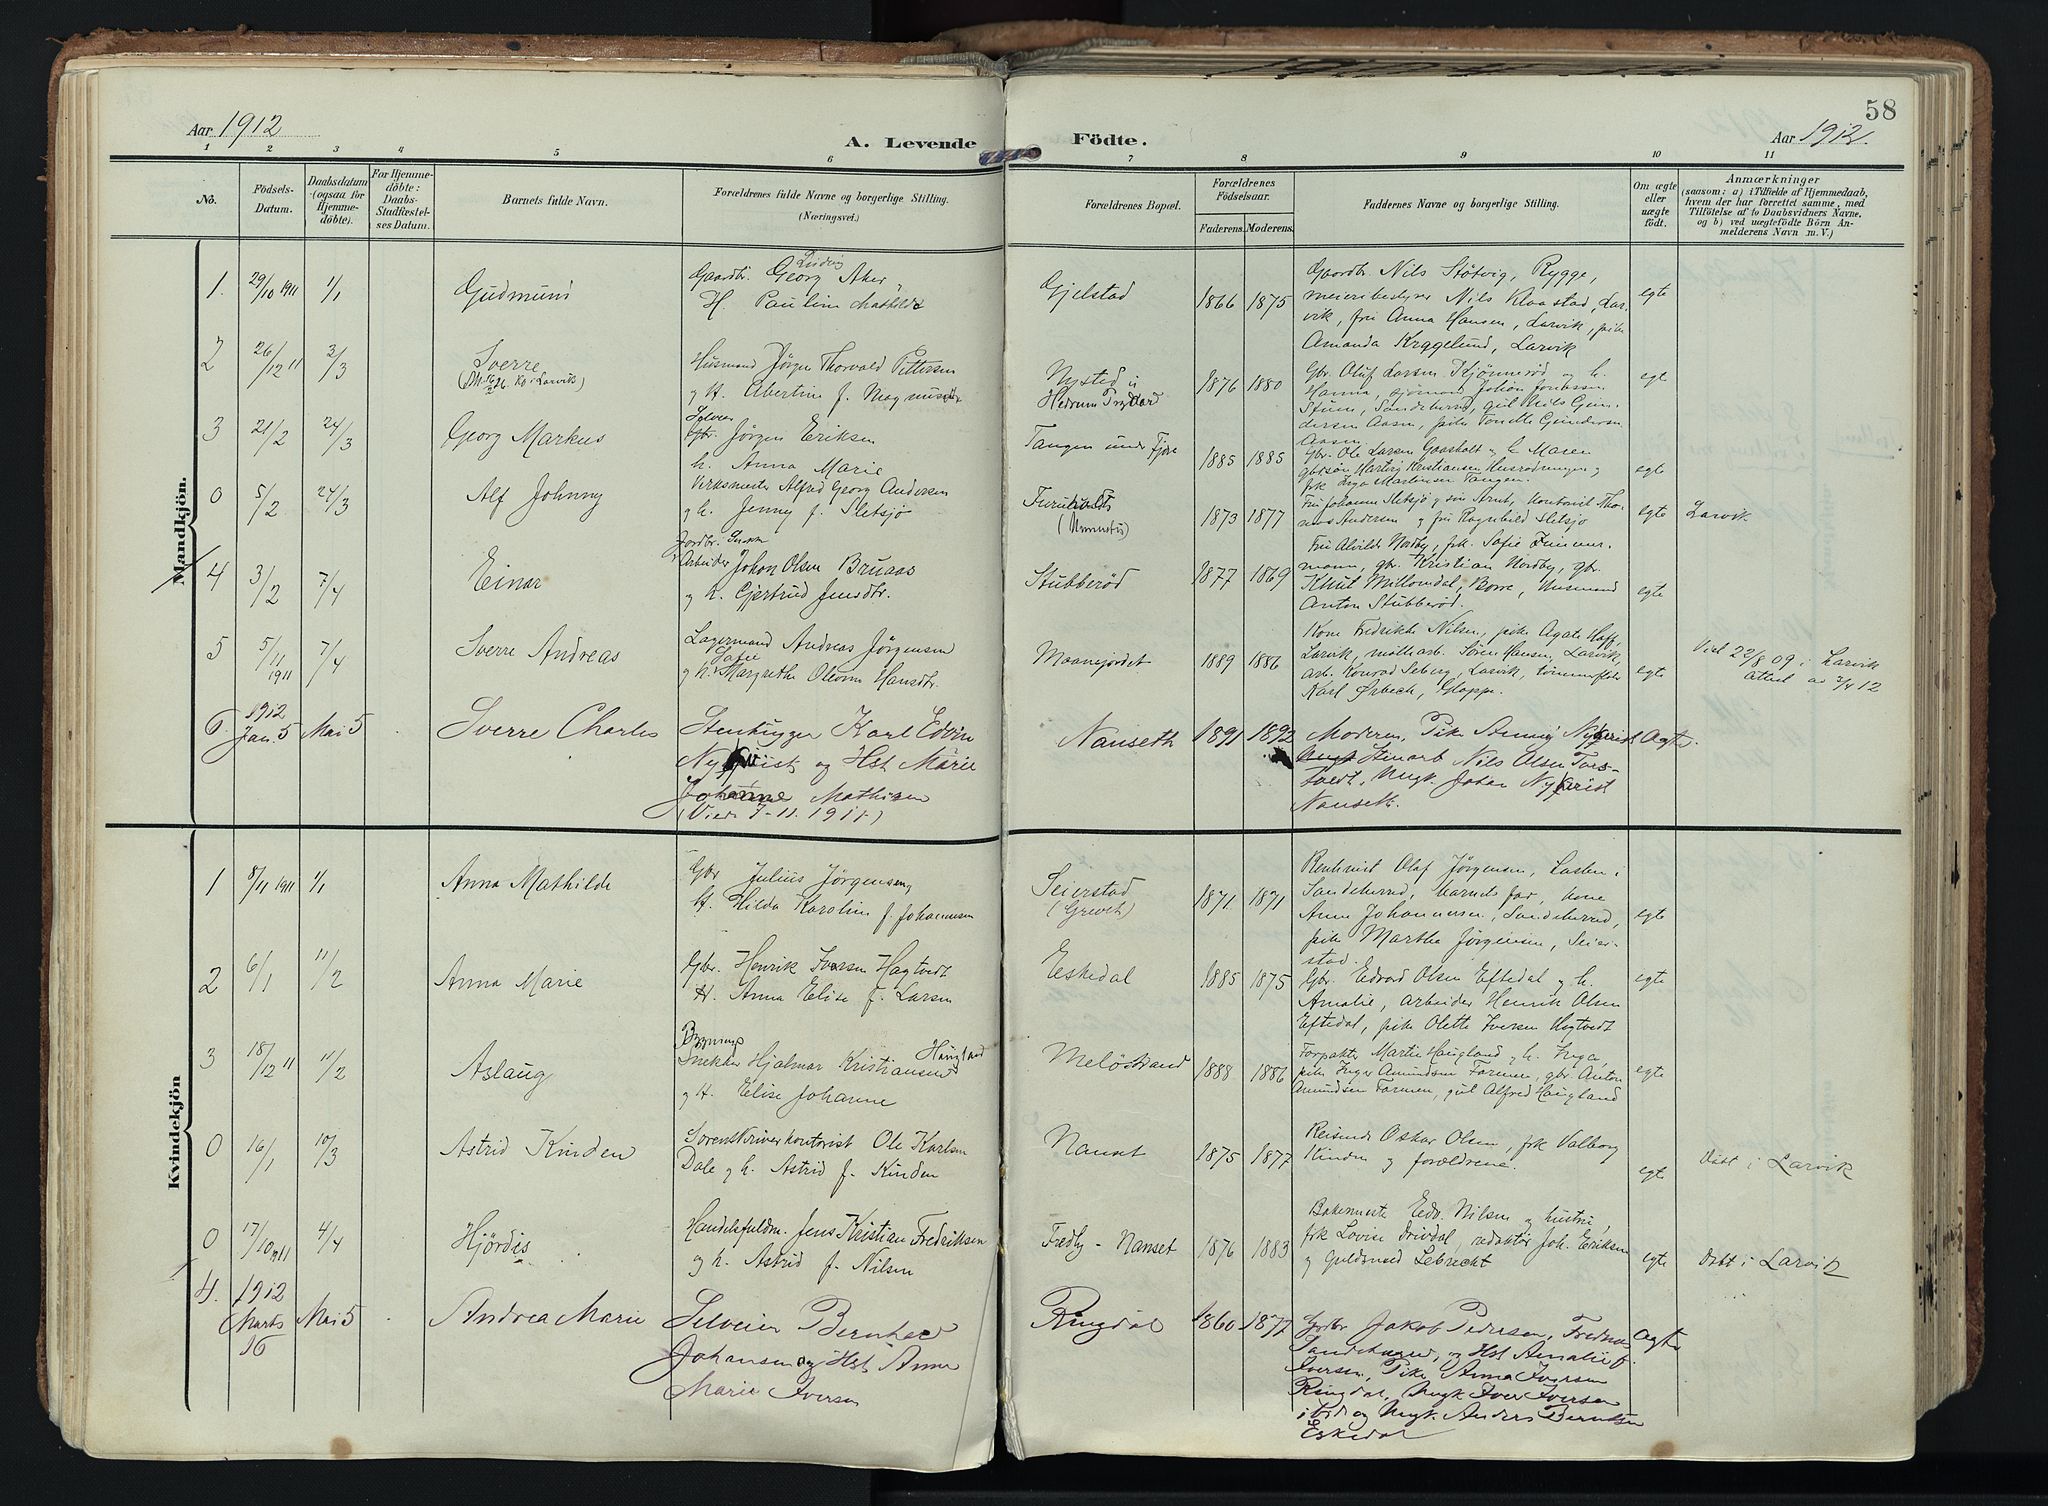 58
Aar 1912
A. Levende Födte.
Aar 1912.
1 2 3 4 5 6 7 8 9 10 11
No.
Födsels-
Datum.
Daabsdatum
(ogsaa for
Hjemme-
döbte).
For Hjemme-
döbte:
Daabs-
Stadfæstel-
ses Datum.
Barnets fulde Navn.
Forældrenes fulde Navne og borgerlige Stilling.
(Næringsvei.)
Forældrenes Bopæl.
Forældrenes
Födselsaar.
Faderens. Moderens.
Faddernes Navne og borgerlige Stilling.
Om ægte
eller
uægte
födt.
Anmærkninger
(saasom: a) i Tilfælde af Hjemmedaab,
hvem der har forrettet samme, med
Tilföielse af to Daabsvidners Navne,
og b) ved uægtefödte Börn An-
melderens Navn m. V.)
Mandkjön.
1. 29/10 1911 1/1 Gudmund
Gaardbr. Georg Ludvig Aker
H. Pauline Mathilde
Gjelstad 1866 1875
Gaardbr Nils Støtvig, Rygge,
meieribestyrer Nils Klaastad, Lar-
vik, fru Anna Hansen, Larvik, pike
Amanda Kryggelund, Larvik
egte
2 26/12 11 3/3 Sverre
Husmand Jörgen Thorvald Pettersen
og H. Albertine f. Magnusdtr
Nysted u
1876 1880
Gbr Oluf Larsen Kjønnerød og h.
Hanna, sjömand Johan Jonassen
egte
3 21/2 24/3 Georg Markus
Selveier
Gbr. Jörgen Eriksen
h. Anna Marie
Tangen under Fjøre 1885 1885
Gbr. Ole Larsen Gaasholt og h. Maren
frk Inga Martinsen Tangen.
egte
0 5/2 24/3 Alf Johnny
Verksmester Alfred Georg Andersen
og h. Jenny f. Sletsjø
1873 1877
Fru Johanne Sletsjø og søn Arnt, kontorist Tho-
mas Andersen og fru Ragnhild Sletsjo
egte Larvik
4 3/2 7/4 Einar
Arbeider Johan Olsen Bruaas
og h. Gjertrud Jensdtr.
Stubberød 1877 1869
Fru Alvilde Nordby, frk. Sofie Timmer-
mann, gbr. Kristian Nordby, gbr.
Knut Millomdal, Borre, Husmand
Anton Stubberød.
egte
5 5/11 1911 7/4 Sverre Andreas
Lagermand Andreas Jörgensen
og h. Sofie Margrethe Olevine Hansdtr.
Maanejordet 1889 1886
Kone Fredrikke Nilsen, pike Agate Hoff,
Larvik, mölleарb. Sören Hansen, Larvik,
arb. Konrad Seberg, Larvik, tömmerfløter
Karl Ørbech, Gloppe.
egte
Viel 22/8 09 i Larvik
Attest av 3/4 12
6. 1912 Jan. 5 Mai 5 Sverre Charles
Stenhugger Karl Edvin
Nykvist og Hst Marie
Johanne Mathisen
(Viede 7-11. 1911)
Nanseth 1891 1892
Moderen, Pike Jenny Nykvist
Ungk Stenarb Nils Olsen Tors-
tvedt, Ungk. Johan Nykvist
Nanseth.
Ægte.
Kvindekjön
1 8/11 1911 1/1 Anna Mathilde
Gbr Julius Jörgensen,
H. Hilda Karoline f. Johannesen
Seierstad
(Grevet) 1871 1871
Olaf Jörgensen, Lasken i
Sandeherred, barnets far, kone
Anne Johannessen, Sandeherred,
pike Martha Jörgensen, Seier-
stad.
egte
2 6/1 11/2 Anna Marie
Gbr. Henrik Iversen Hagtvedt
H. Anna Elise f. Larsen
Eskedal 1885 1875
Gbr. Edvard Olsen Eftedal og h.
Amalie, arbeider Henrik Olsen
Eftedal, pike Olette Iversen Hagtvedt
egte
3 18/12 11 11/2 Aslaug
Bygnings
Snekker Hjalmar Kristiansen Haugland
og H. Elise Johanne
Meløstrand 1888 1886
Forpakter Martin Haugland og h. Inga,
pike Inger Amundsen Farmen, gbr. Anton
Amundsen Farmen, gut Alfred Haugland
egte
0 16/1 10/3 Astrid Kinden
Sorenskriverkontorist Ole Karlsen
Dale og h. Astrid f. Kinden
Nanset 1875 1877
Reisende Oskar Olsen, frk Valborg
Kinden og forældrene.
egte Døbt i Larvik
0 17/10 1911 4/4 Hjördis
Handelsfuldm. Jens Kristian Fredriksen
og h. Astrid f. Nilsen
Fredly - Nanset 1876 1883
Bakermester Edv. Nilsen og hustru,
frk Lovise Drivdal, redaktør Joh. Eriksen
og Guldsmed Lebrecht
egte Døbt i Larvik
4. 1912 Marts 16 Mai 5 Andrea Marie
Selveier Bernhard
Johansen og Hst Anne
Marie Iversen
Ringdal 1860 1877
Gbr Jakob Pedersen, Frednes
Sandeherred, og Hst Amalie f.
Iversen, Pike Anna Iversen
Ringdal, Ungk Iver Iversen
ibid og Ungk. Anders Berntsen
Eskedal
Ægte